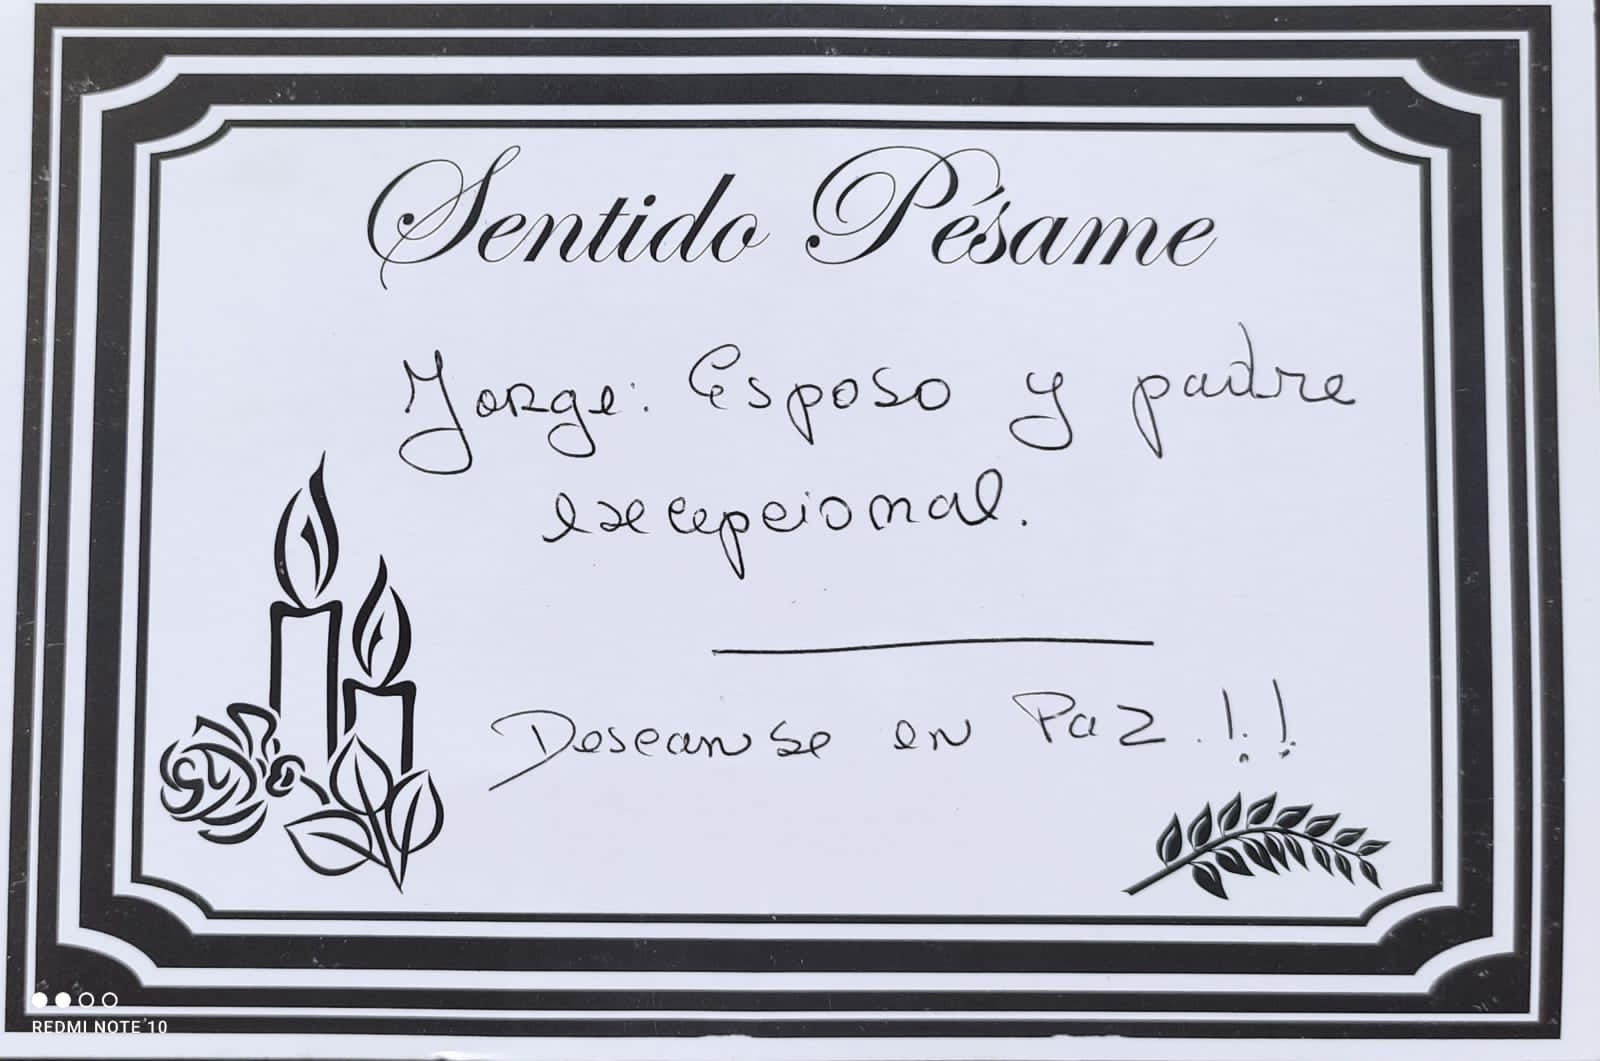 Sentido Pésame
Jorge: Esposo y padre
excepcional.
Descanse en Paz.!!
REDMI NOTE 10